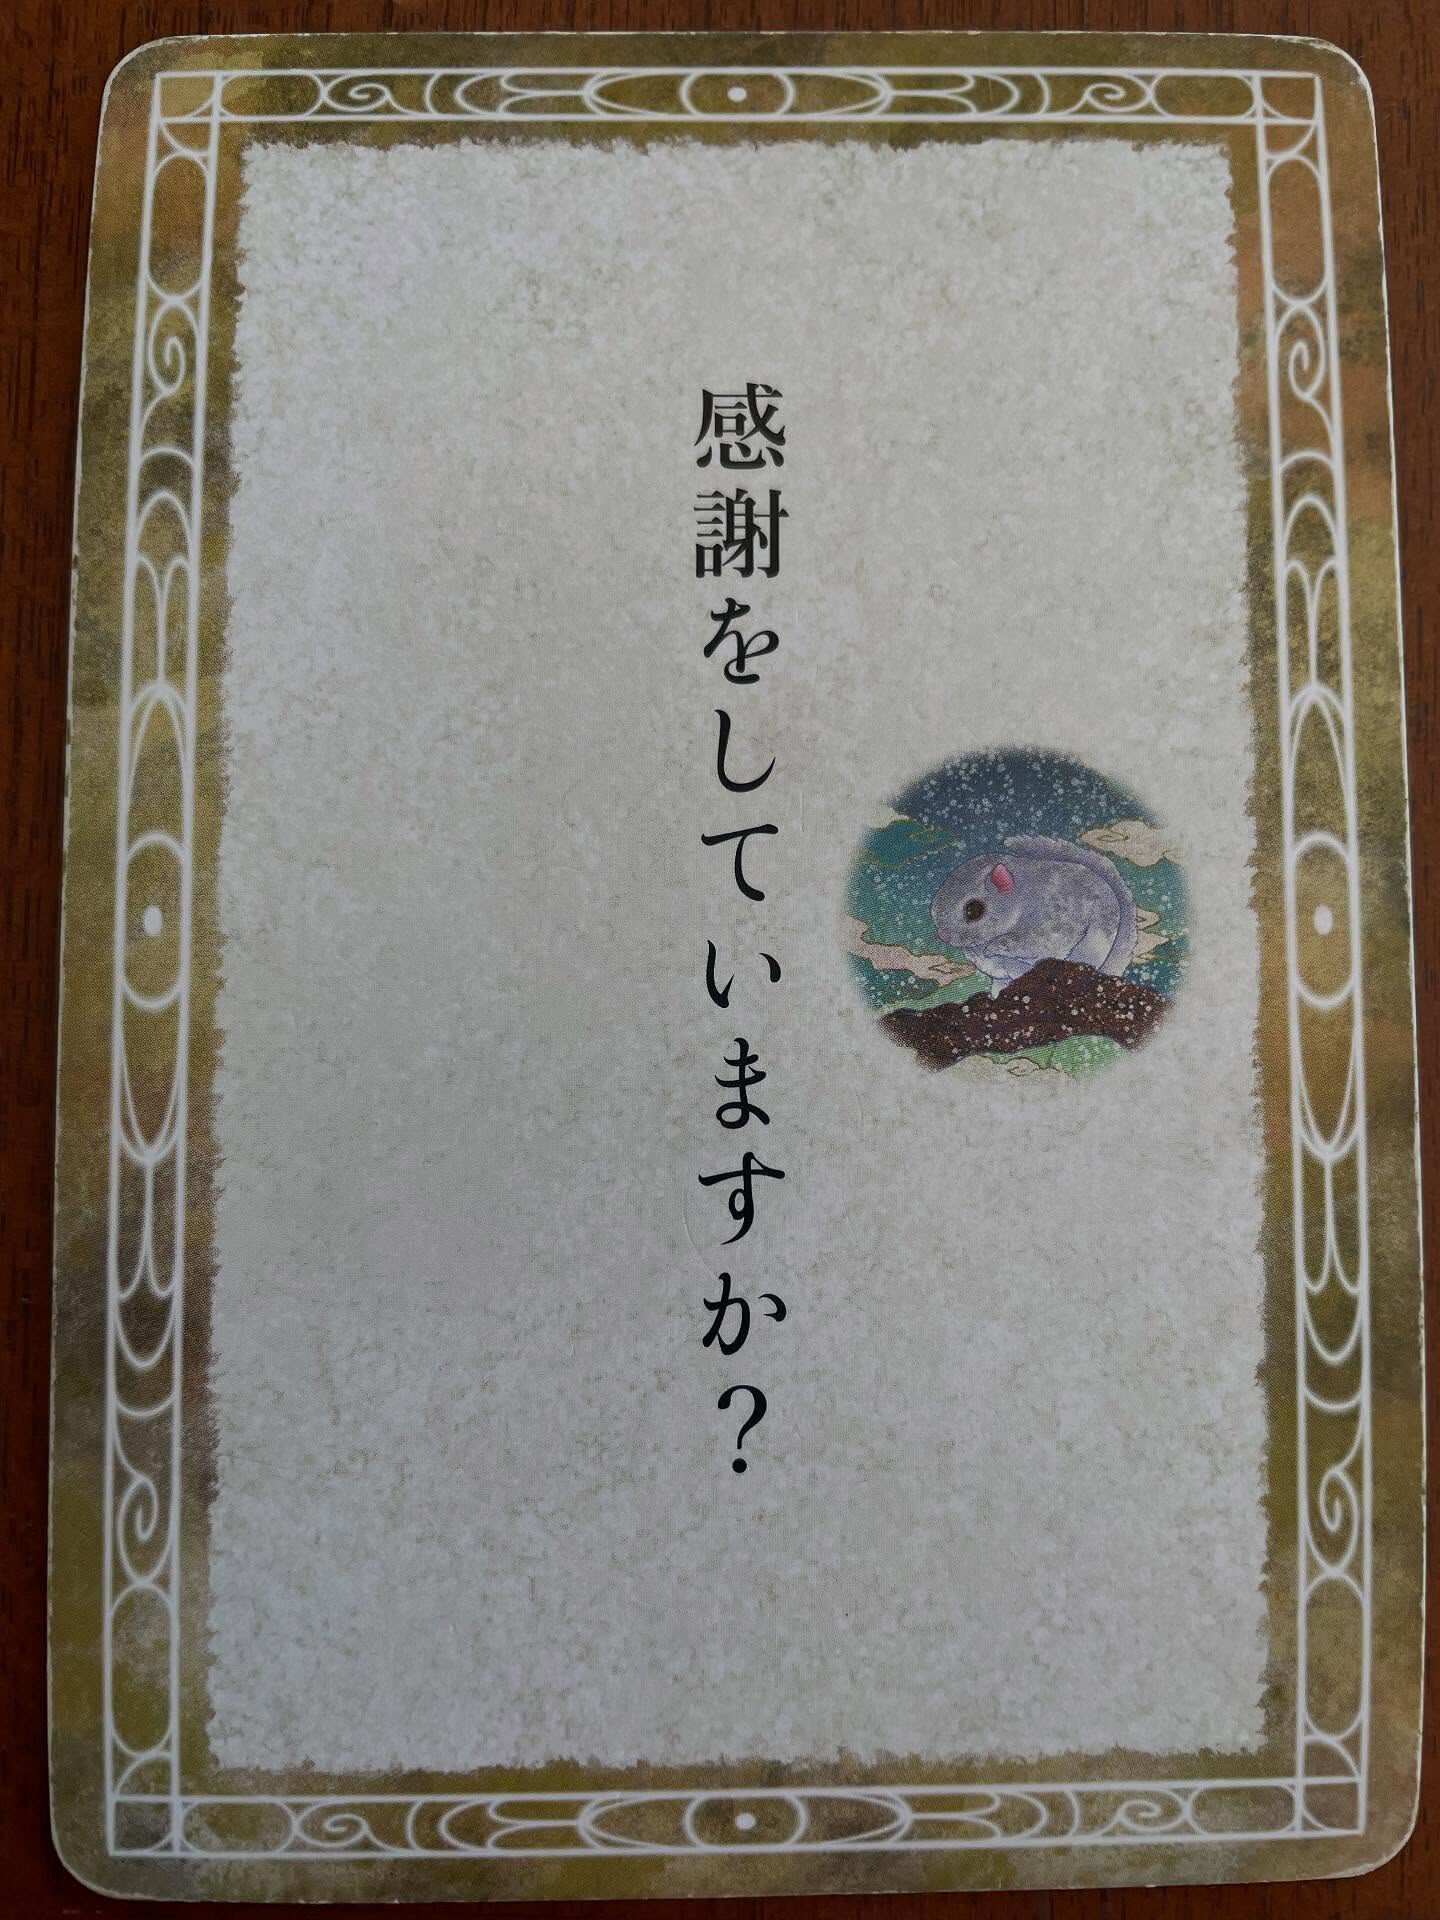 感謝をしていますか？